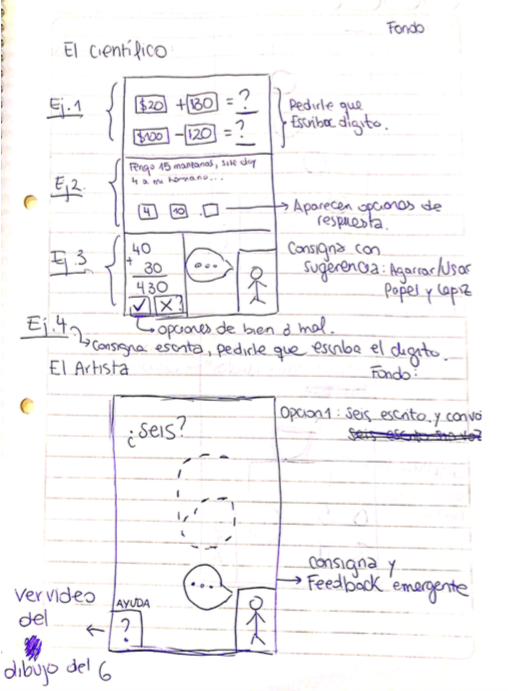 Fondo
El científico
Ej.1
$20 + 130 = ?
$100 - 120 = ?
Pedirle que
Escriba digito.
Ej2.
Tengo 15 manzanas, si le doy
4 a mi hermano...
4 10
Aparecen opciones de
respuesta.
Ej.3
40
+
30
430
✓ X ?
...
Consigna con
sugerencia: Agarrar/Usar
Papel y Lapiz
opciones de bien ó mal.
Ej.4
Consigna escrita, pedirle que escriba el digito.
El Artista
Fondo:
¿seis?
Opcion1: Seis escrito y con voz
...
consigna y
Feedback emergente
AYUDA
?
ver video
del
dibujo del 6